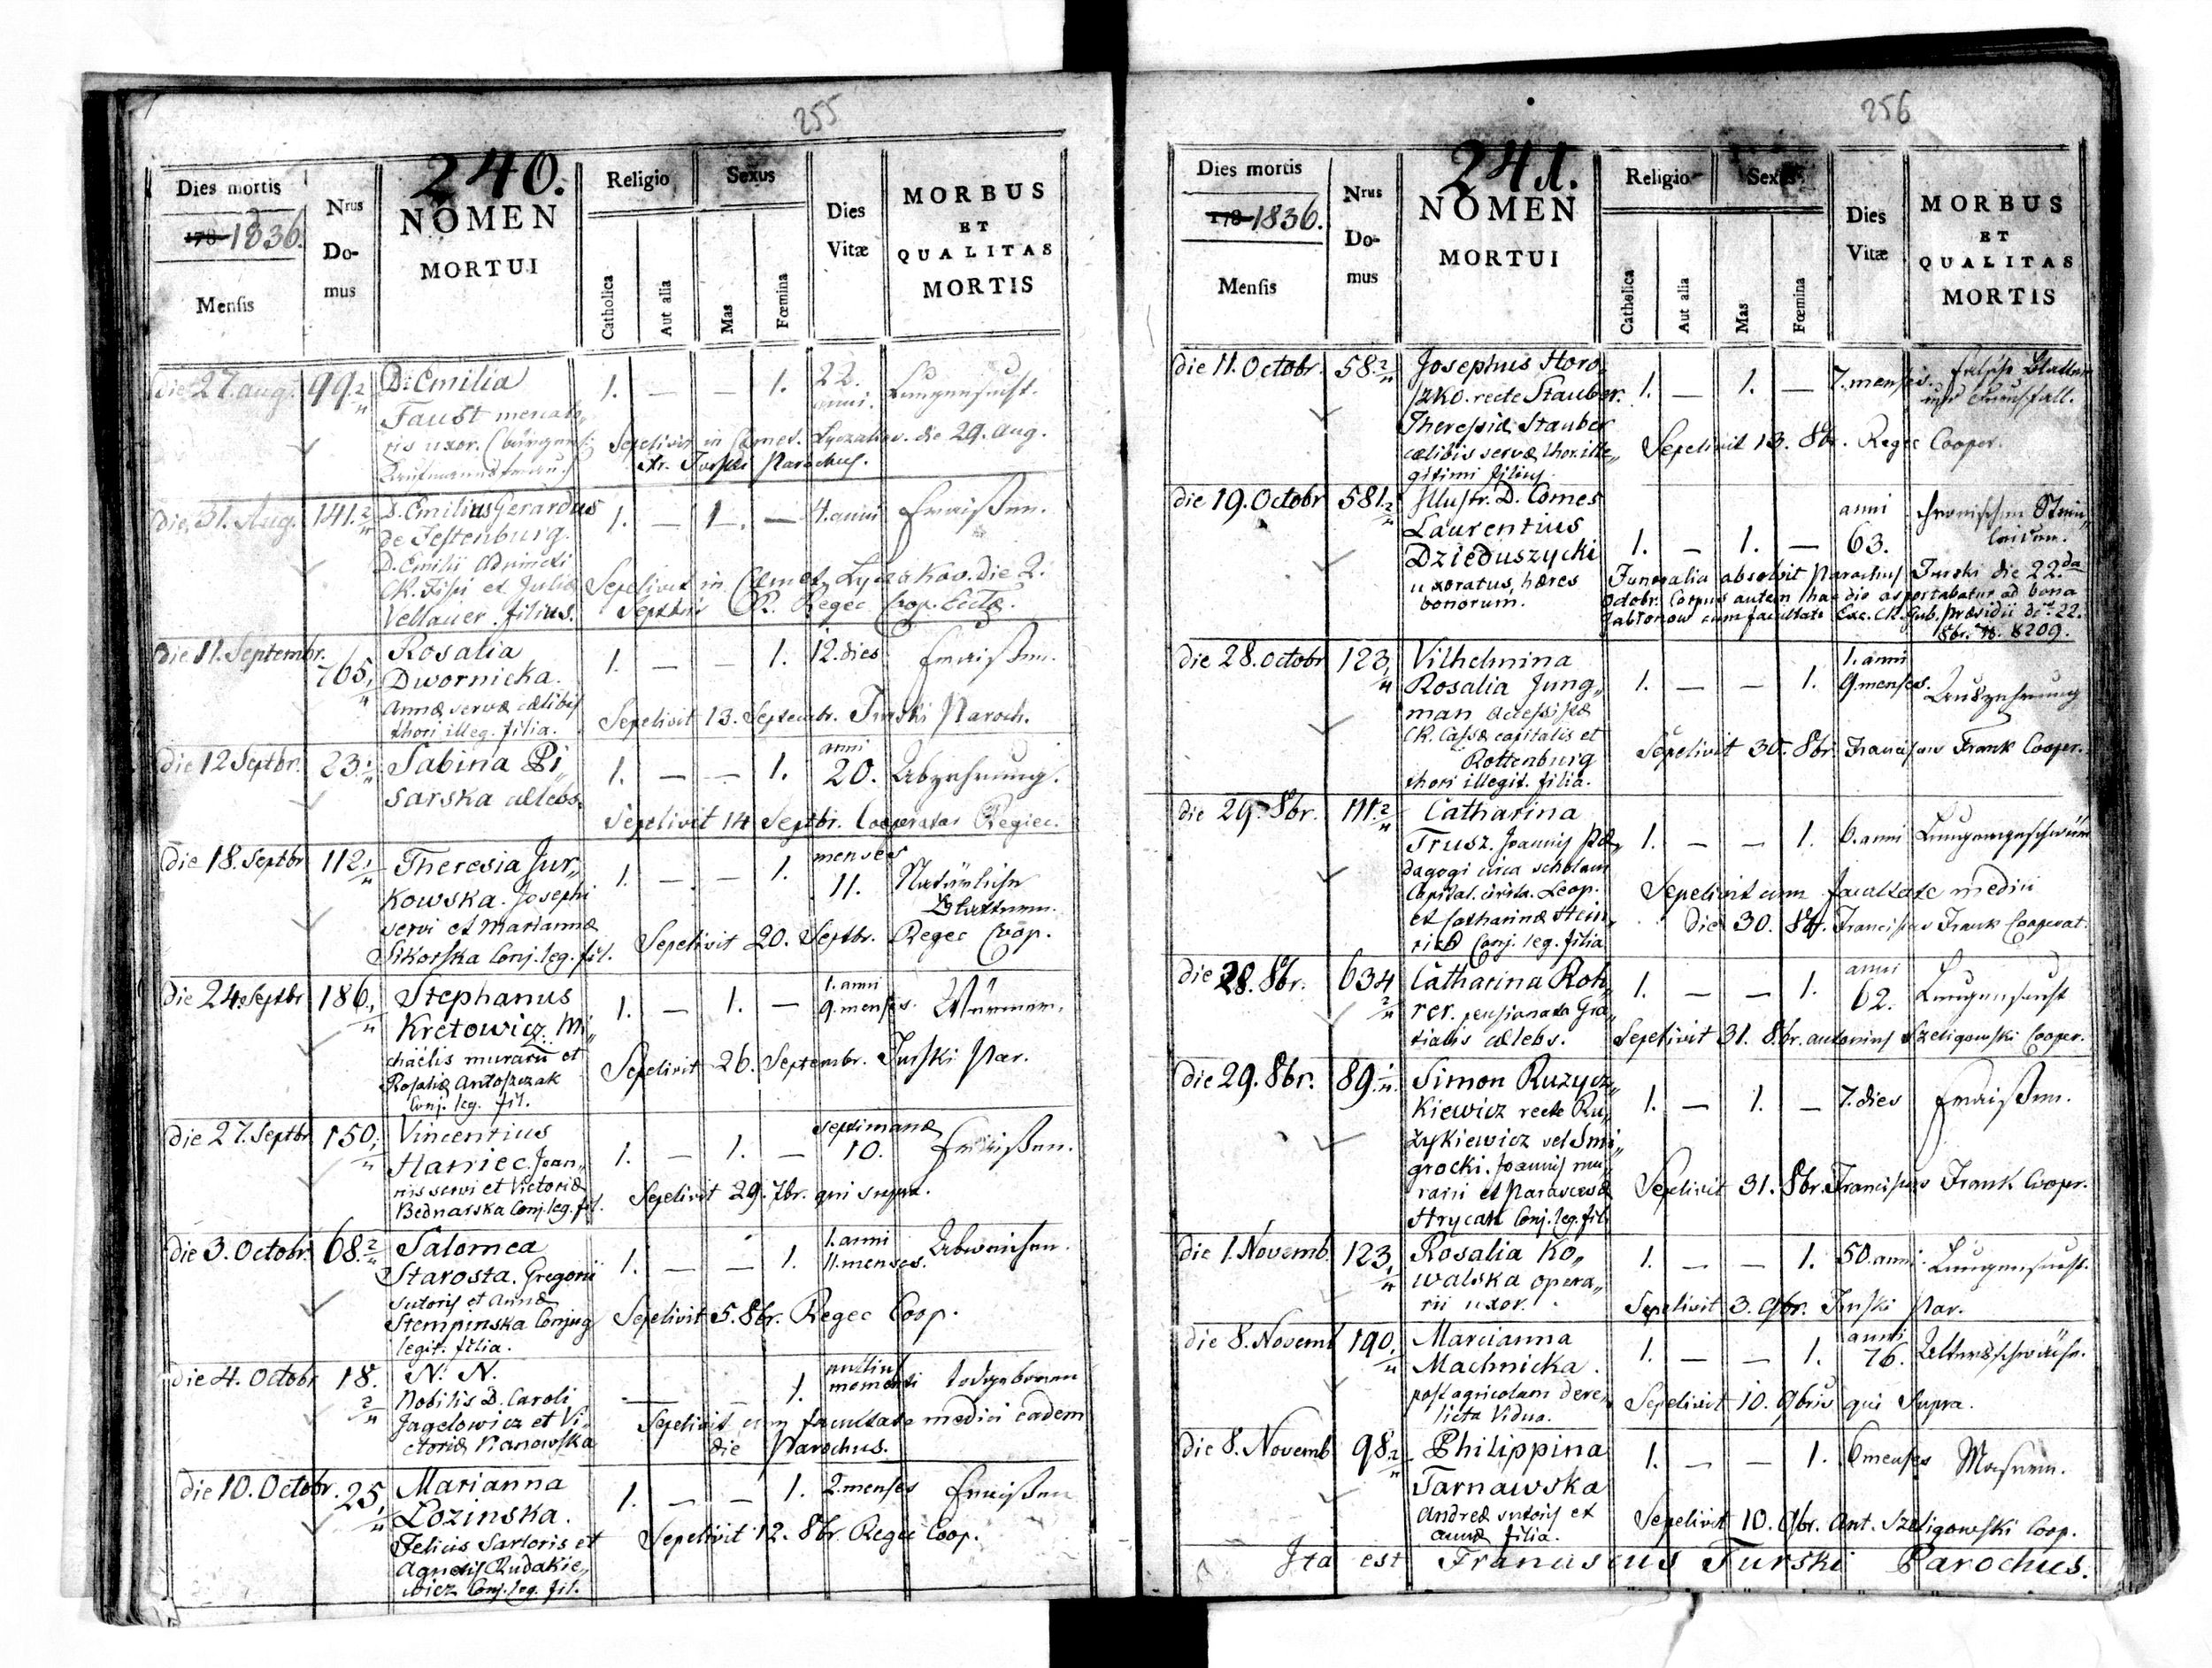 255
240.
Dies mortis
178 1836.
Mensis
Nrus
Do-
mus
NOMEN
MORTUI
Religio
Catholica
Aut alia
Sexus
Mas
Fœmina
Dies
Vitæ
MORBUS
ET
QUALITAS
MORTIS
die 27. aug. 99. 2/4 D. Emilia 1. — — 1. 22. anni. Lungensucht.
Faust mercato„
ris uxor. (bürgerl:
Kaufmannsfrau.)
Sepelivit in Cœmet. Lyczakov. die 29. Aug.
Fr. Turski Parochus.
die 31. Aug. 141. 2/4 D. Emilius Gerardus 1. — 1. — 4. anni Fraißen.
de Festenburg.
D. Emilii
CR. Fisci et Juliæ
Vellauer filius.
Sepelivit in Cœmet. Lyczakov. die 2.
Septbris Regec Coop.
die 11. Septembr. 765. 1/4 Rosalia 1. — — 1. 12. dies Fraißen.
Dwornicka.
Annæ servæ cælibis
thori illeg. filia.
Sepelivit 13. Septembr. Turski Paroch.
die 12 Septbr. 23. 1/4 Sabina Pi„ 1. — — 1. anni 20. Abzehrung.
sarska cælebs.
Sepelivit 14 Septbr. Cooperator Regiec.
die 18. Septbr 112. 1/4 Theresia Jur„ 1. — — 1. menses 11. Natürliche
Blattern.
kowska. Josephi
servi et Mariannæ
Sikorska Conj. leg. fil.
Sepelivit 20. Septbr. Regec Coop.
die 24. Septbr 186. 1/4 Stephanus 1. — 1. — 1. anni 9. menses. Würmer.
Kretowicz. Mi„
chaelis murarii et
Rosaliæ Antoszczak
Conj. leg. fil.
Sepelivit 26. Septembr. Turski Par.
die 27. Septbr 150. 1/4 Vincentius 1. — 1. — septimanæ 10. Fraißen.
Haniec. Joan„
nis servi et Victoriæ
Bednarska Conj. leg. fil.
Sepelivit 29. 7br. qui supra.
die 3. Octobr. 68. 2/4 Salomea 1. — — 1. 1. anni 11. menses. Abweichen.
Starosta. Gregorii
sutoris et Annæ
Stempinska Conjug
legit. filia.
Sepelivit 5. 8br. Regec Coop.
die 4. Octobr 18. 2/4 N. N. — — 1. nullius momenti todgebohren
Nobilis D. Caroli
Jagelowicz et Vi„
ctoriæ Panowska
Sepelivit cum facultate medici eadem
die Parochus.
die 10. Octobr. 25. 1/4 Marianna 1. — — 1. 2. menses Fraißen
Lozinska.
Felicis Sartoris et
Agnetis Rudakie„
wicz Conj. leg. fil.
Sepelivit 12. 8br Regec Coop.
256
241.
Dies mortis
178 1836.
Mensis
Nrus
Do-
mus
NOMEN
MORTUI
Religio
Catholica
Aut alia
Sexus
Mas
Fœmina
Dies
Vitæ
MORBUS
ET
QUALITAS
MORTIS
die 11. Octobr. 58. 2/4 Josephus Horo„ 1. — 1. — 7. menses. Falsche Blattern
und Durchfall.
szko. recte Stauber.
Theresiæ Stauber
cælibis servæ thori ille„
gitimi filius.
Sepelivit 13. 8br. Regec Cooper.
die 19. Octobr 581. 2/4 Illustr. D. Comes 1. — 1. — anni 63. chronischen Stein„
leiden.
Laurentius
Dzieduszycki
uxoratus, hæres
bonorum.
Funeralia absolvit Parochus Turski die 22da
octobr. Corpus autem hac die asportabatur ad bona
Jabłonow cum facultate Exc. CR. Gub. Præsidii dto 22.
8br. N. 8209.
die 28. octobr 123. 1/4 Vilhelmina 1. — — 1. 1. anni 9. menses. Auszehrung
Rosalia Jung„
man accessistæ
CR. Cassæ capitalis et
Rottenburg
thori illegit. filia.
Sepelivit 30. 8br. Franciscus Frank Cooper.
die 29. 8br. 111. 2/4 Catharina 1. — — 1. 6. anni Lungengeschwür
Trusz. Joannis pæ„
dagogi circa scholam
Capital. civita. Leop.
et Catharinæ Hein„
rich Conj. leg. filia
Sepelivit cum facultate medici
die 30. 8br. Franciscus Frank Cooperat.
die 28. 8br. 634 2/4 Catharina Roh„ 1. — — 1. anni 62. Lungensucht
rer. pensionata Gra„
tialis cælebs.
Sepelivit 31. 8br. antonius Szeligowski Cooper.
die 29. 8br. 89. 1/4 Simon Ruzycz„ 1. — 1. — 7. dies Fraißen.
kiewicz recte Ru„
żykiewicz vel Smi„
grocki. Joannis mu„
rarii et Parascevæ
Hrycak Conj. leg. fil.
Sepelivit 31. 8br. Franciscus Frank Cooper.
die 1. Novemb. 123. 1/4 Rosalia Ko„ 1. — — 1. 50. anni. Lungensucht.
walska opera„
rii uxor.
Sepelivit 3. 9br. Turski Par.
die 8. Novemb 190. 1/4 Marcianna 1. — — 1. anni 76. Altersschwäche.
Machnicka.
post agricolam dere„
licta Vidua.
Sepelivit 10. 9bris qui supra.
die 8. Novemb 98. 2/4 Philippina 1. — — 1. 6 menses Masern.
Tarnawska
Andreæ sutoris et
annæ filia.
Sepelivit 10. 9br. Ant. Szeligowski Coop.
Ita est Franciscus Turski Parochus.